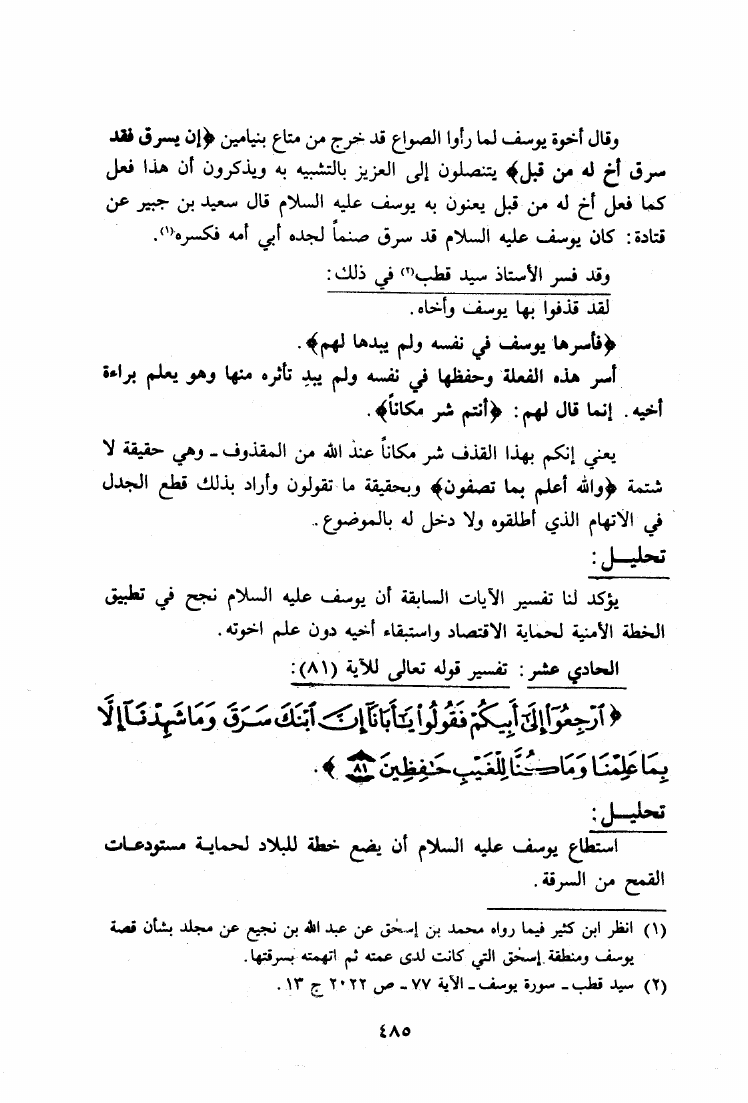 وقال أخوة يوسف لما رأوا الصواع قد خرج من متاع بنيامين ﴿إن يسرق فقد
سرق أخ له من قبل﴾ يتنصلون إلى العزيز بالتشبيه به ويذكرون أن هذا فعل
كما فعل أخ له من قبل يعنون به يوسف عليه السلام قال سعيد بن جبير عن
قتادة: كان يوسف عليه السلام قد سرق صنماً لجده أبي أمه فكسره(١).
وقد فسر الأستاذ سيد قطب(٢) في ذلك:
لقد قذفوا بها يوسف وأخاه.
﴿فأسرها يوسف في نفسه ولم يبدها لهم﴾.
أسر هذه الفعلة وحفظها في نفسه ولم يبدِ تأثره منها وهو يعلم براءة
أخيه. إنما قال لهم: ﴿أنتم شر مكاناً﴾.
يعني إنكم بهذا القذف شر مكاناً عند الله من المقذوف - وهي حقيقة لا
شتمة ﴿والله أعلم بما تصفون﴾ وبحقيقة ما تقولون وأراد بذلك قطع الجدل
في الاتهام الذي أطلقوه ولا دخل له بالموضوع..
تحليل:
يؤكد لنا تفسير الآيات السابقة أن يوسف عليه السلام نجح في تطبيق
الخطة الأمنية لحماية الاقتصاد واستبقاء أخيه دون علم اخوته.
الحادي عشر: تفسير قوله تعالى للآية (٨١):
﴿ٱرْجِعُوٓا۟ إِلَىٰٓ أَبِيكُمْ فَقُولُوا۟ يَٰٓأَبَانَآ إِنَّ ٱبْنَكَ سَرَقَ وَمَا شَهِدْنَآ إِلَّا
بِمَا عَلِمْنَا وَمَا كُنَّا لِلْغَيْبِ حَٰفِظِينَ ٨١﴾.
تحليل:
استطاع يوسف عليه السلام أن يضع خطة للبلاد لحماية مستودعات
القمح من السرقة.
(١) انظر ابن كثير فيما رواه محمد بن إسحٰق عن عبد الله بن نجيع عن مجلد بشأن قصة
يوسف ومنطقة إسحٰق التي كانت لدى عمته ثم اتهمته بسرقتها.
(٢) سيد قطب - سورة يوسف - الآية ٧٧ - ص ٢٠٢٢ ج ١٣.
٤٨٥